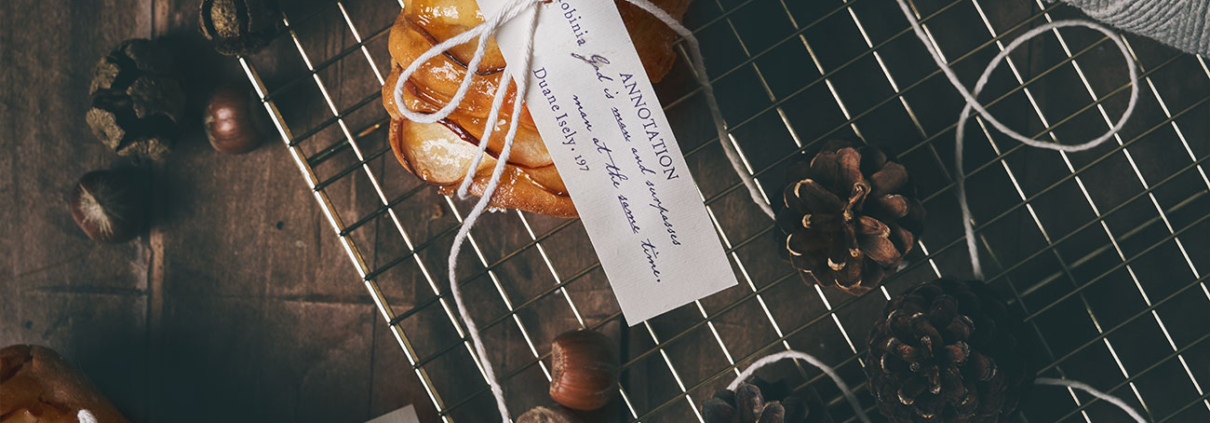 obinia
Duane Isely, 197
ANNOTATION
God is man and surpasses
man at the same time.